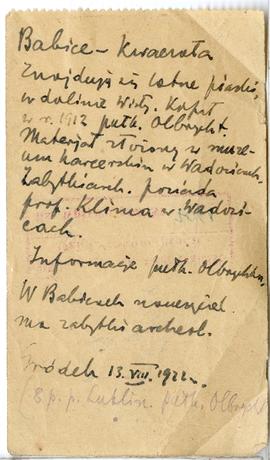 Babice – Kwaczała
Znajdują się lotne piaski,
w dolinie Wisły. Kopał
w r. 1912 pułk. Olbrycht.
Materjał złożony w muze-
um harcerskim w Wadowicach.
Zabytki arch. posiada
prof. Klima w Wadowi-
cach.
Informacje pułk. Olbrychta,
W Babicach nauczyciel
ma zabytki archeol.
Gródek 13. VIII. 1922.
8 p. p. Lublin. pułk. Olbrycht